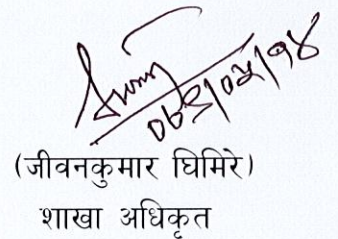 ०७९/०५/१४
(जीवनकुमार घिमिरे)
शाखा अधिकृत